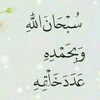 سُبْحَانَ اللَّهِ
وَبِحَمْدِهِ
عَدَدَ خَلْقِهِ